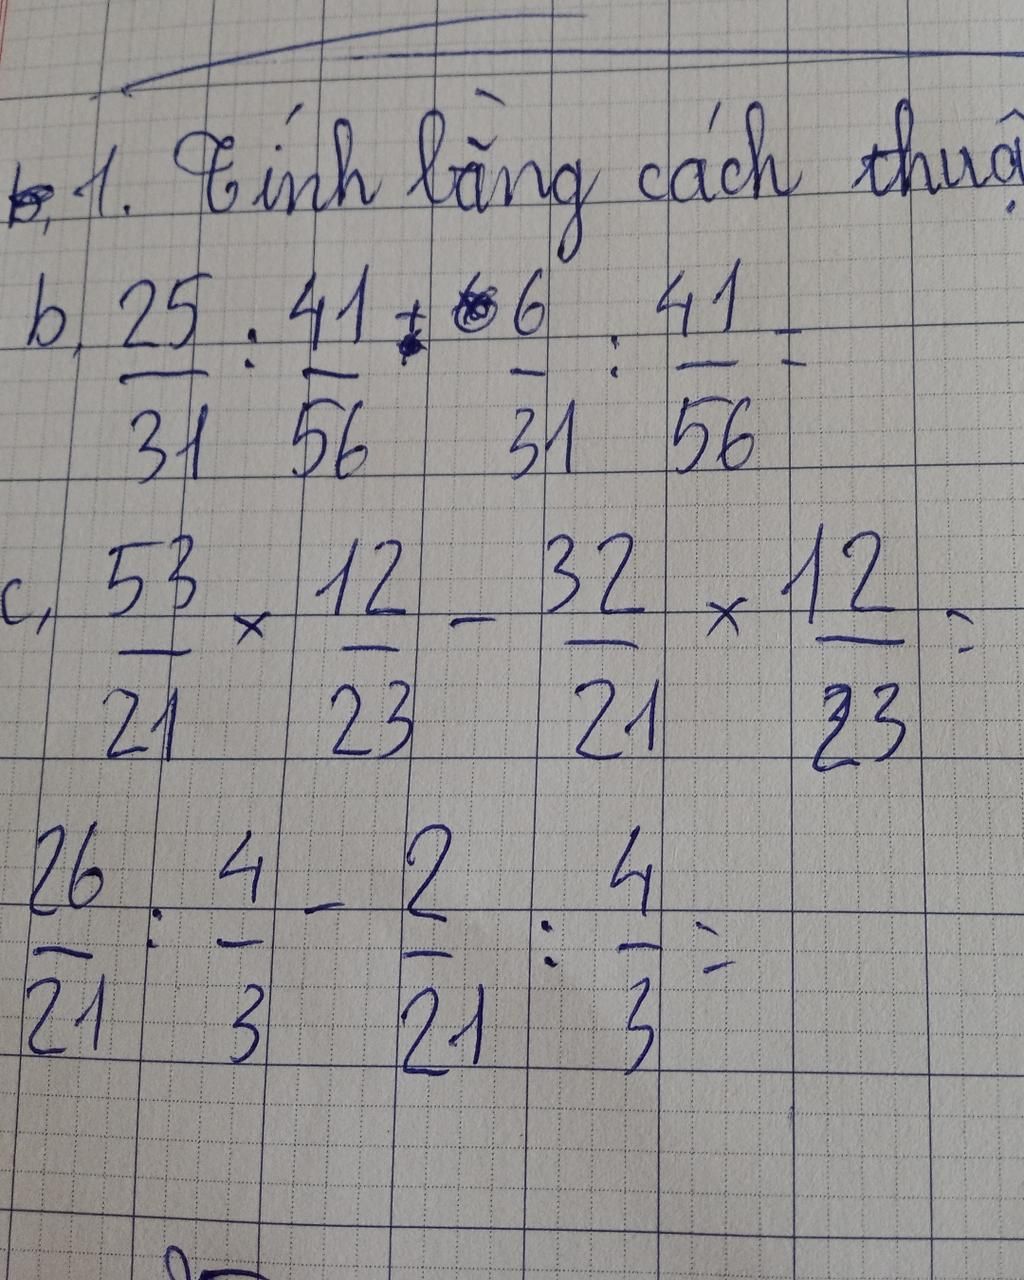 1. Tính bằng cách thuậ
b, 25/31 : 41/56 + 6/31 : 41/56 =
c, 53/21 × 12/23 - 32/21 × 12/23 =
26/21 : 4/3 - 2/21 : 4/3 =